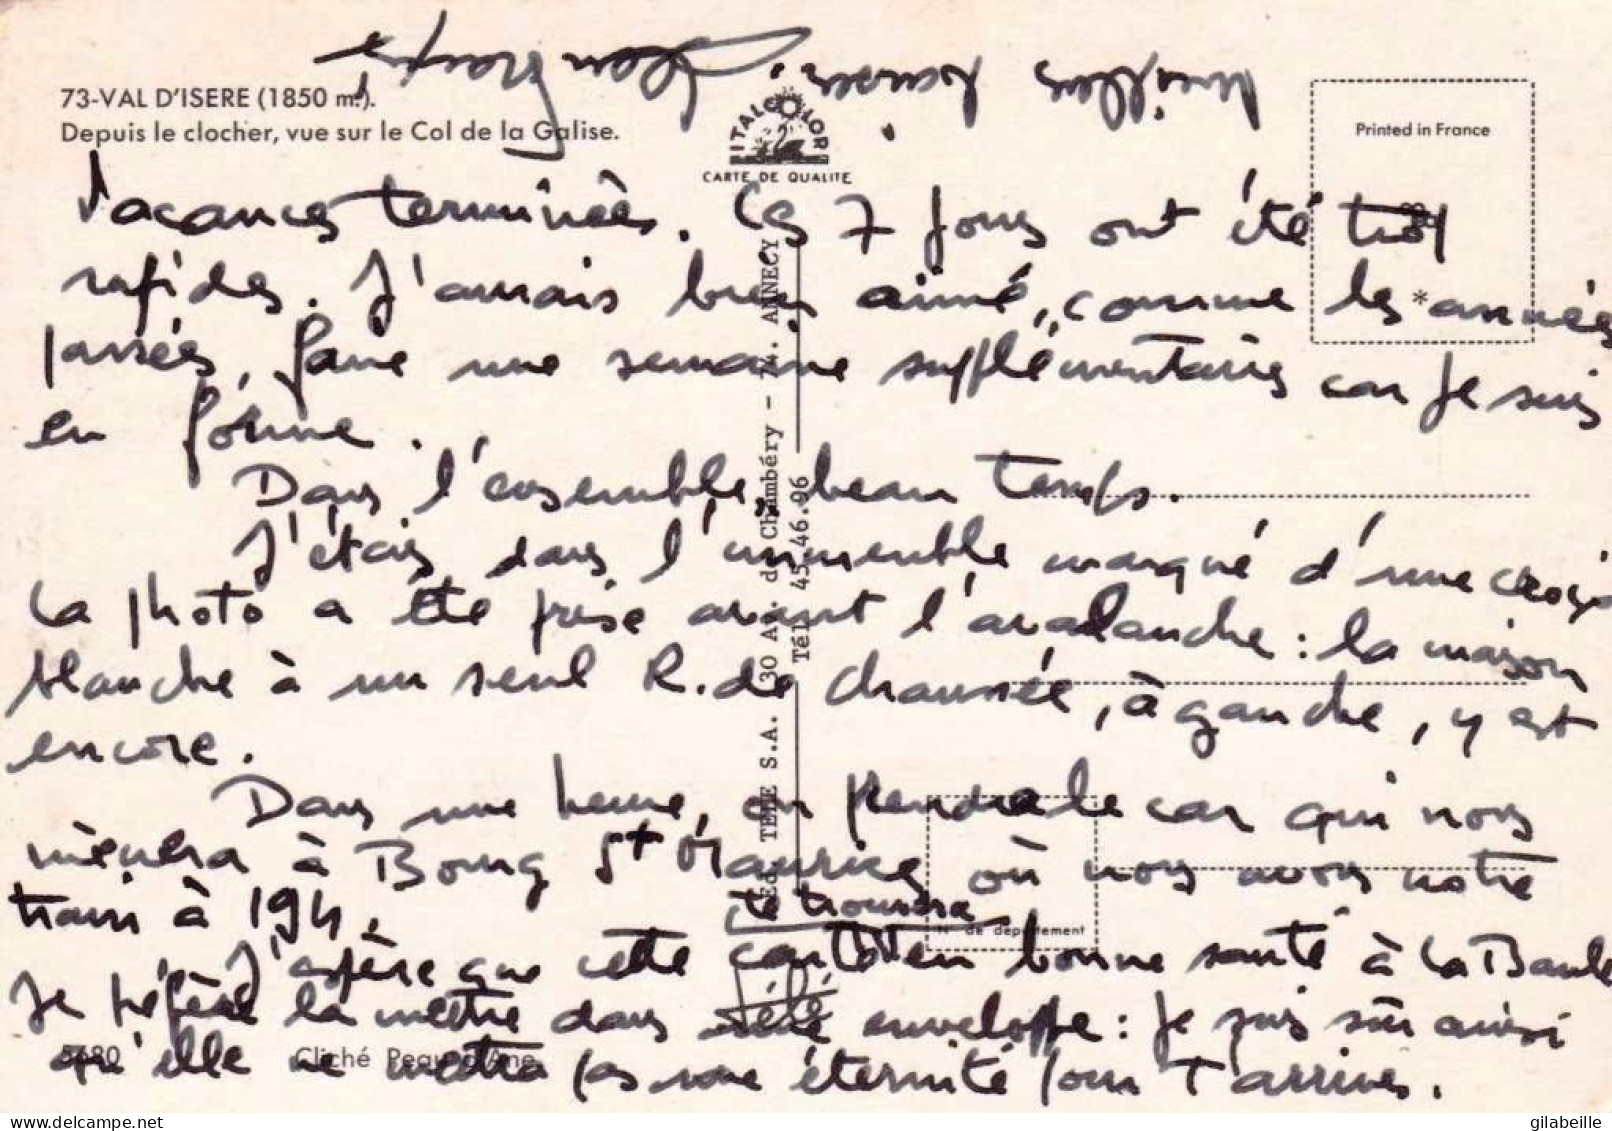 73-VAL D'ISERE (1850 m.).
Depuis le clocher, vue sur le Col de la Galise.
ITALCOLOR
CARTE DE QUALITE
Printed in France
Vacances terminées. Ces 7 jours ont été trop
rapides. J'aurais bien aimé, comme les années
passées, faire une semaine supplémentaire car je suis
en forme.
Dans l'ensemble, beau temps.
J'étais dans l'immeuble marqué d'une croix
La photo a été prise avant l'avalanche : la maison
blanche à un seul R. de chaussée, à gauche, y est
encore.
Dans une heure, on prendra le car qui nous
mènera à Bourg St Maurice où nous avons notre
train à 19h.
J'espère que cette carte te trouvera en bonne santé à La Baule
Je préfère la mettre dans une enveloppe : je suis sûr ainsi
qu'elle ne mettra pas une éternité pour t'arriver.
Meilleurs baisers. Jean François
Ed. TELLE S.A. 30 Av. de Chambéry - 74. ANNECY
Tél. 45.46.96
N° de département
5680
Cliché Peau d'Ane
gilabeille